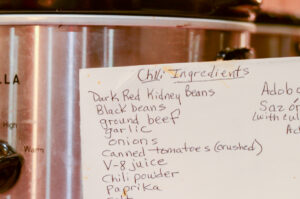 Chili Ingredients
Dark Red Kidney Beans
Black beans
ground beef
garlic
onions
Canned tomatoes (crushed)
V-8 juice
Chili powder
Paprika
Adobo
Sazon
(with cul
LLA
High
Warm